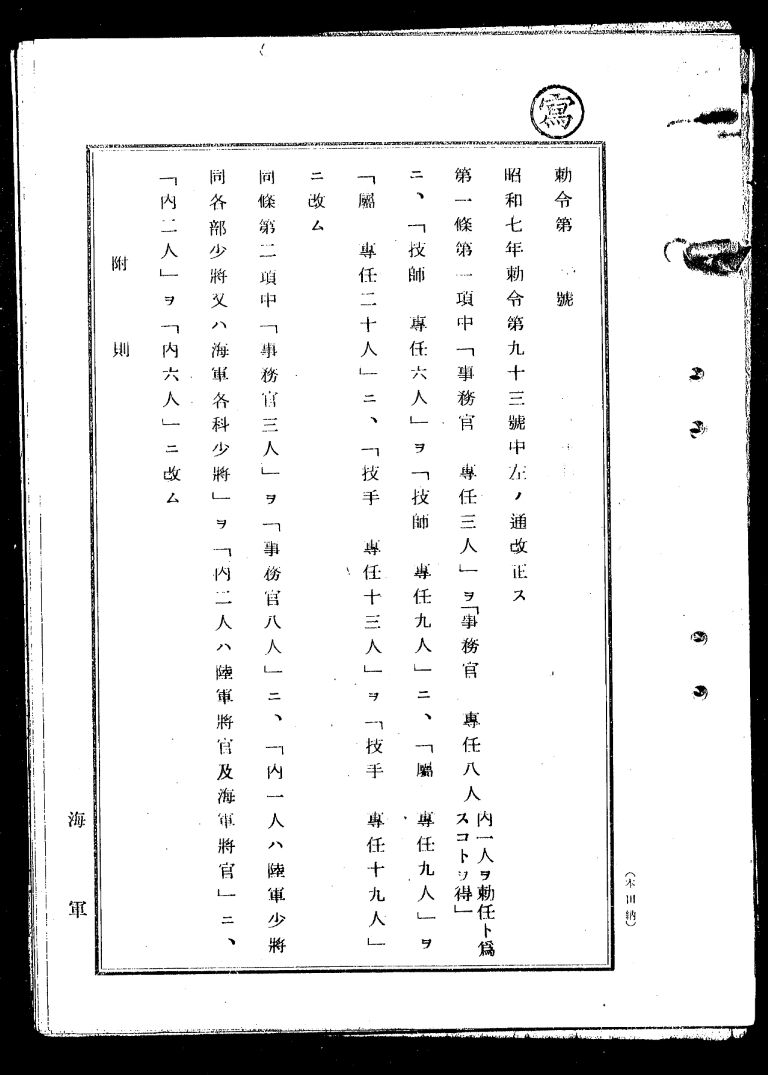 寫
勅令第 號
昭和七年勅令第九十三號中左ノ通改正ス
第一條第一項中「事務官 專任三人」ヲ「事務官 專任八人 內一人ヲ勅任ト爲スコトヲ得」
ニ、「技師 專任六人」ヲ「技師 專任九人」ニ、「屬 專任九人」ヲ
「屬 專任二十人」ニ、「技手 專任十三人」ヲ「技手 專任十九人」
ニ改ム
同條第二項中「事務官三人」ヲ「事務官八人」ニ、「內一人ハ陸軍少將
同各部少將又ハ海軍各科少將」ヲ「內二人ハ陸軍將官及海軍將官」ニ、
「內二人」ヲ「內六人」ニ改ム
附則
海軍